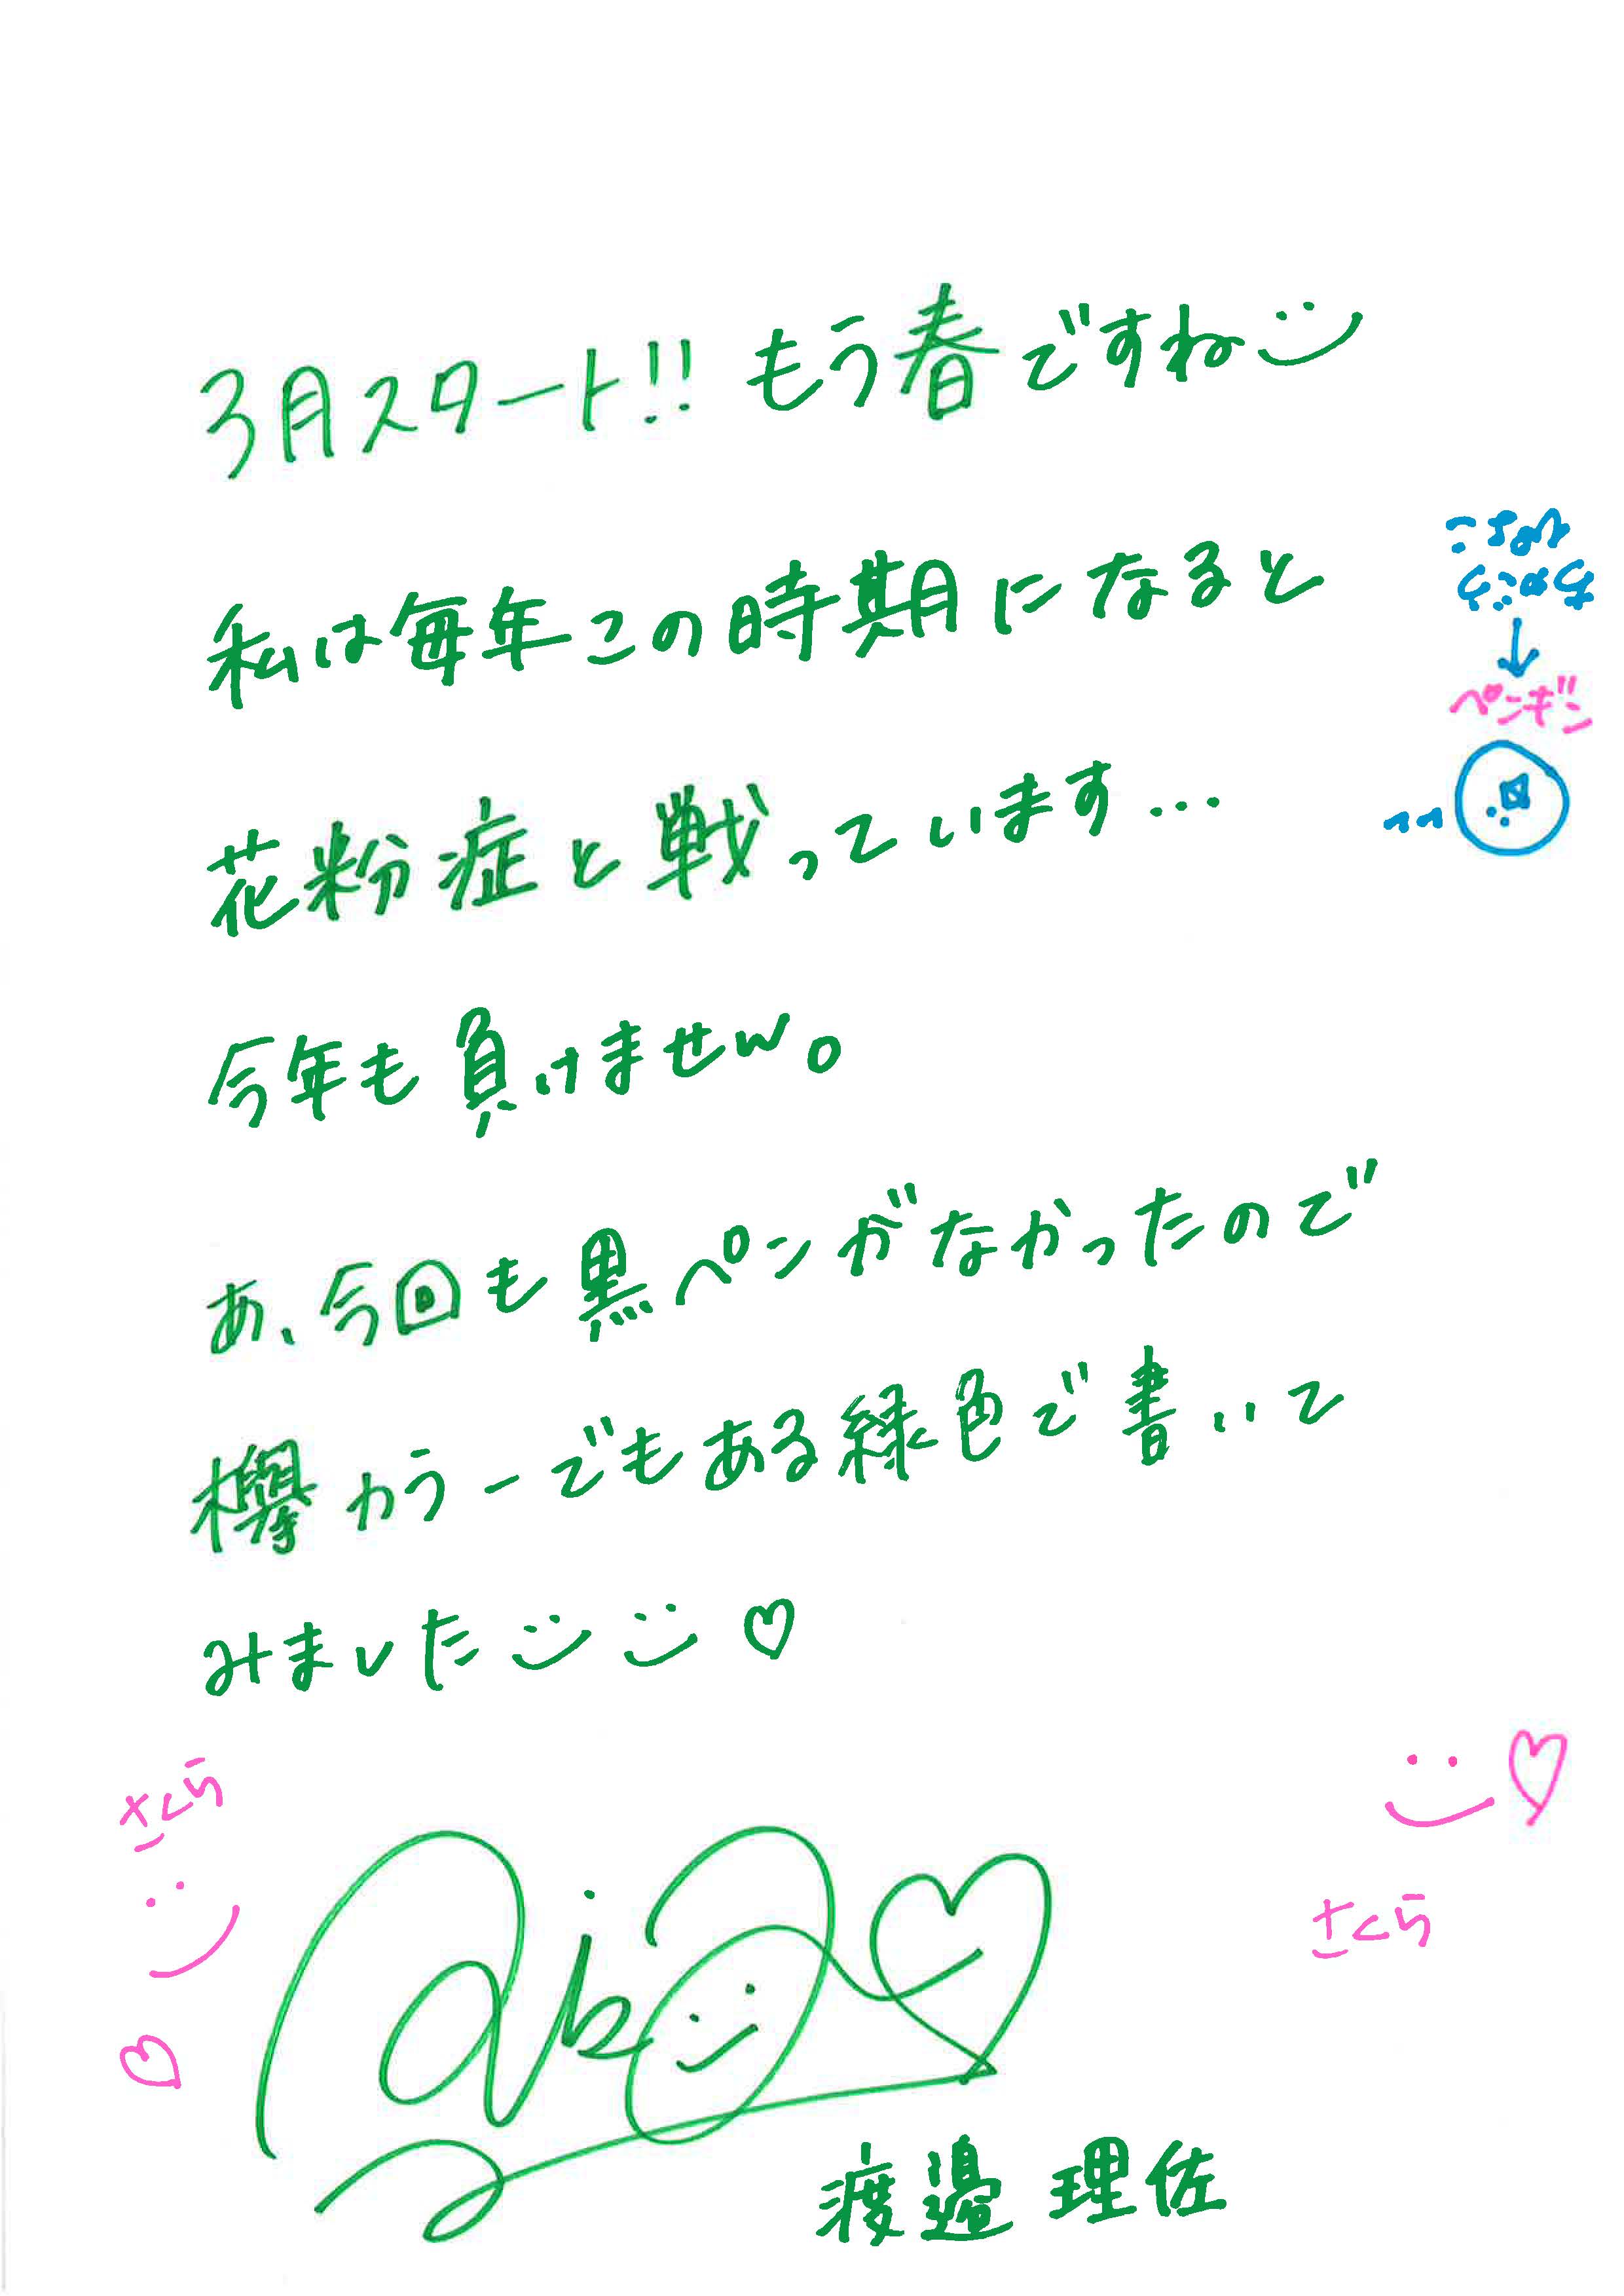 3月スタート!! もう春ですね
私は毎年この時期になると
花粉症と戦っています…
今年も負けません。
あ、今回も黒ペンがなかったので
欅カラーでもある緑色で書いて
みました♡
ペンギン
さくら
さくら
渡邉 理佐